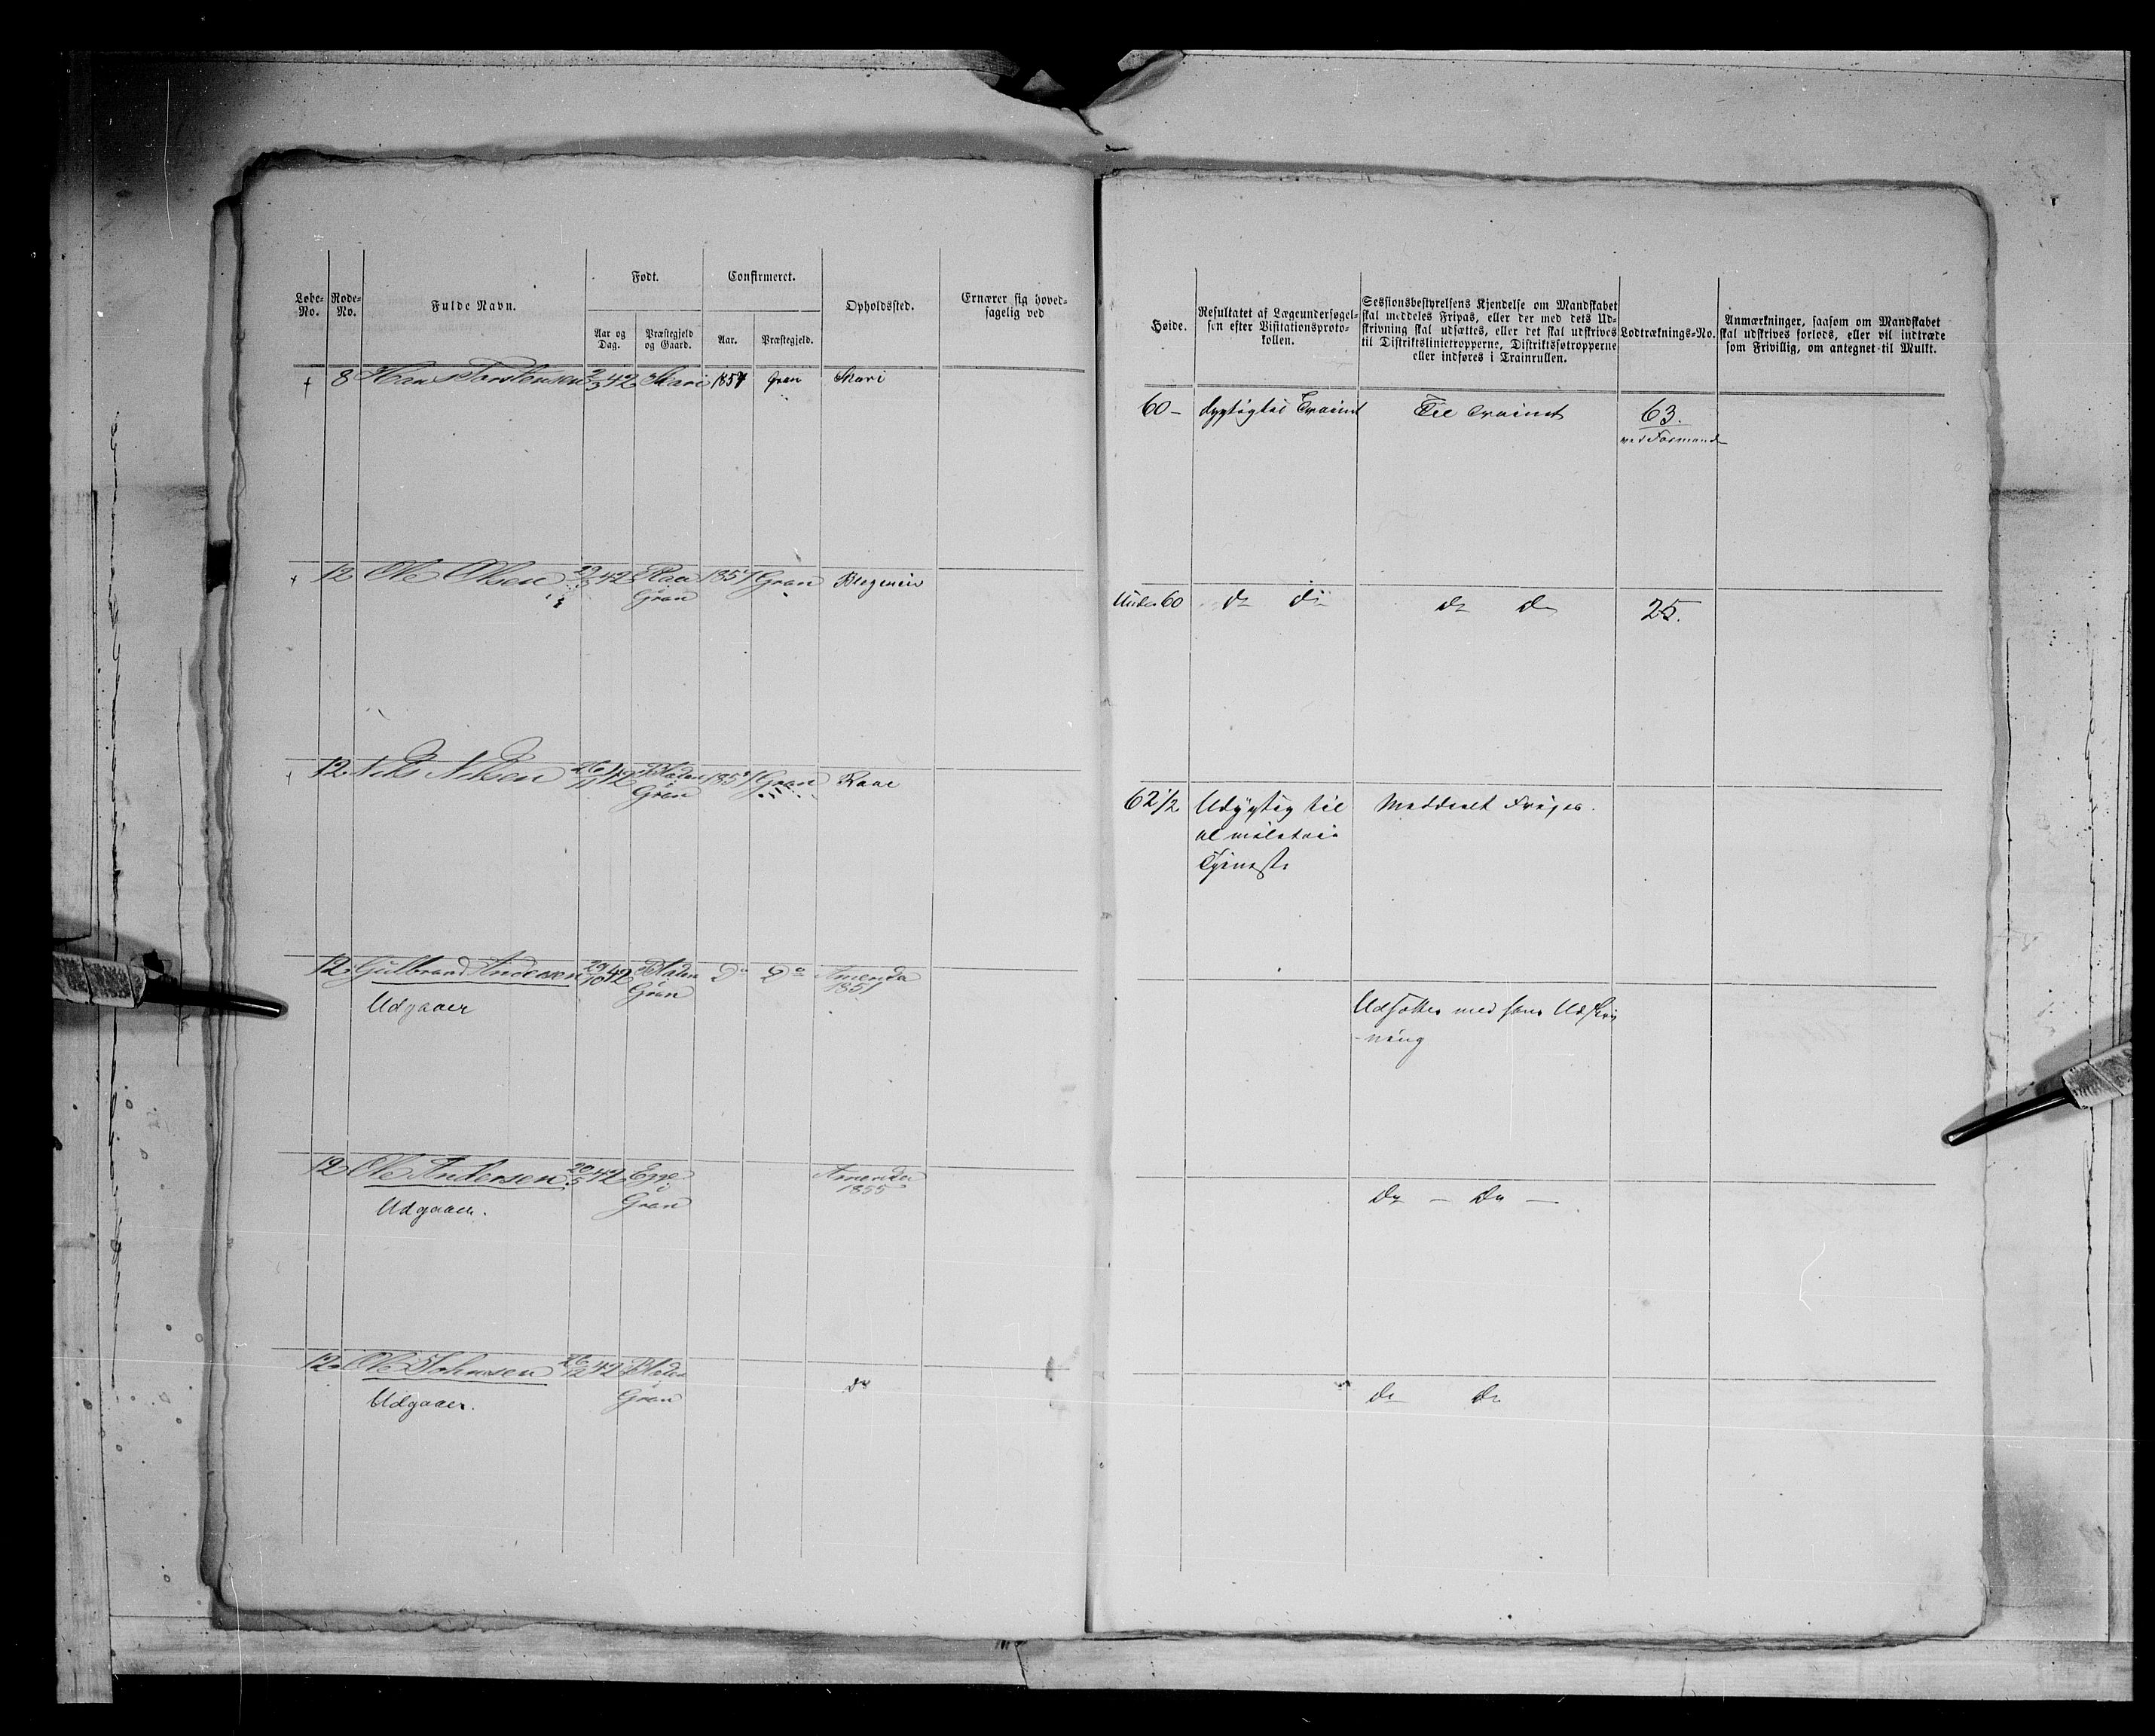 Løbe-No.
Rode-No.
Fulde Navn.
Født.
Aar og Dag.
Præstegjeld og Gaard.
Confirmeret.
Aar.
Præstegjeld.
Opholdssted.
Ernærer sig hoved-
sagelig ved
Høide.
Resultatet af Lægeundersøgel-
sen efter Visitationsproto-
kollen.
Sessionsbestyrelsens Kjendelse om Mandskabet
skal meddeles Fripas, eller der med dets Ud-
skrivning skal udsættes, eller det skal udskrives
til Distriktslinietropperne, Distriktssøtropperne
eller indføres i Trainrullen.
Lodtræknings-No.
Anmærkninger, saasom om Mandskabet
skal udskrives forlods, eller vil indtræde
som Frivillig, om antegnet til Mulkt.
† 8 Hans Torstensen 2/3 42 Skari 1857 Gran Skari
60 – dygtig til Trainet Til Trainet 63.
ved Formand
† 12 Ole Olsen 29/3 42 Raa 1857 Gran
Gran
Under 60 do do do do 25.
† 12 Nils Nilsen 26/11 42 1857 Gran Raae
Gran
62 1/2 Udygtig til Meddeelt Fripas.
al militair
Tjeneste
12 Gulbrand Andersen 29/10 42 Do Do Amerika
Gran 1851
Udgaaer
Udsættes med hans Udskriv
-ning
12 Ole Andersen 20/5 42 Egge Amerika
Gran 1855
Udgaaer.
do – do –
12 Ole Johnsen 26/12 42
Gran do
Udgaaer.
do do